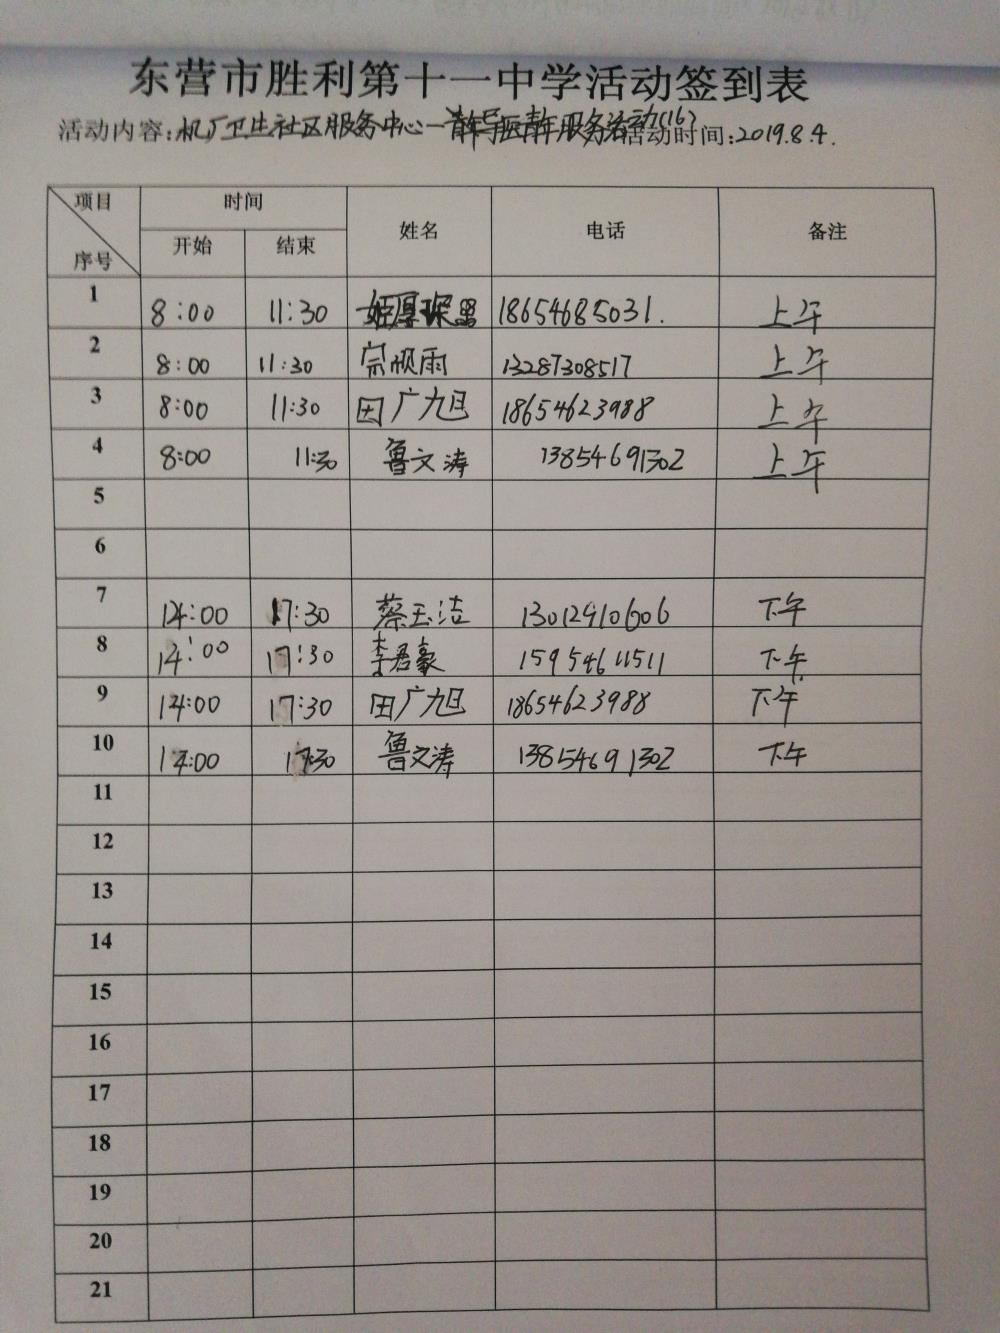 东营市胜利第十一中学活动签到表
活动内容:机厂卫生社区服务中心一 服务活动(16) 活动时间:2019.8.4.
项目 时间 姓名 电话 备注
序号 开始 结束
1 8:00 11:30 18654685031. 上午
2 8:00 11:30 宗顺雨 13287308517 上午
3 8:00 11:30 田广旭 18654623988 上午
4 8:00 11:30 鲁文涛 13854691302 上午
5
6
7 14:00 17:30 蔡玉洁 13012910606 下午
8 14:00 17:30 李君豪 15954611511 下午
9 14:00 17:30 田广旭 18654623988 下午
10 14:00 17:30 鲁文涛 13854691302 下午
11
12
13
14
15
16
17
18
19
20
21